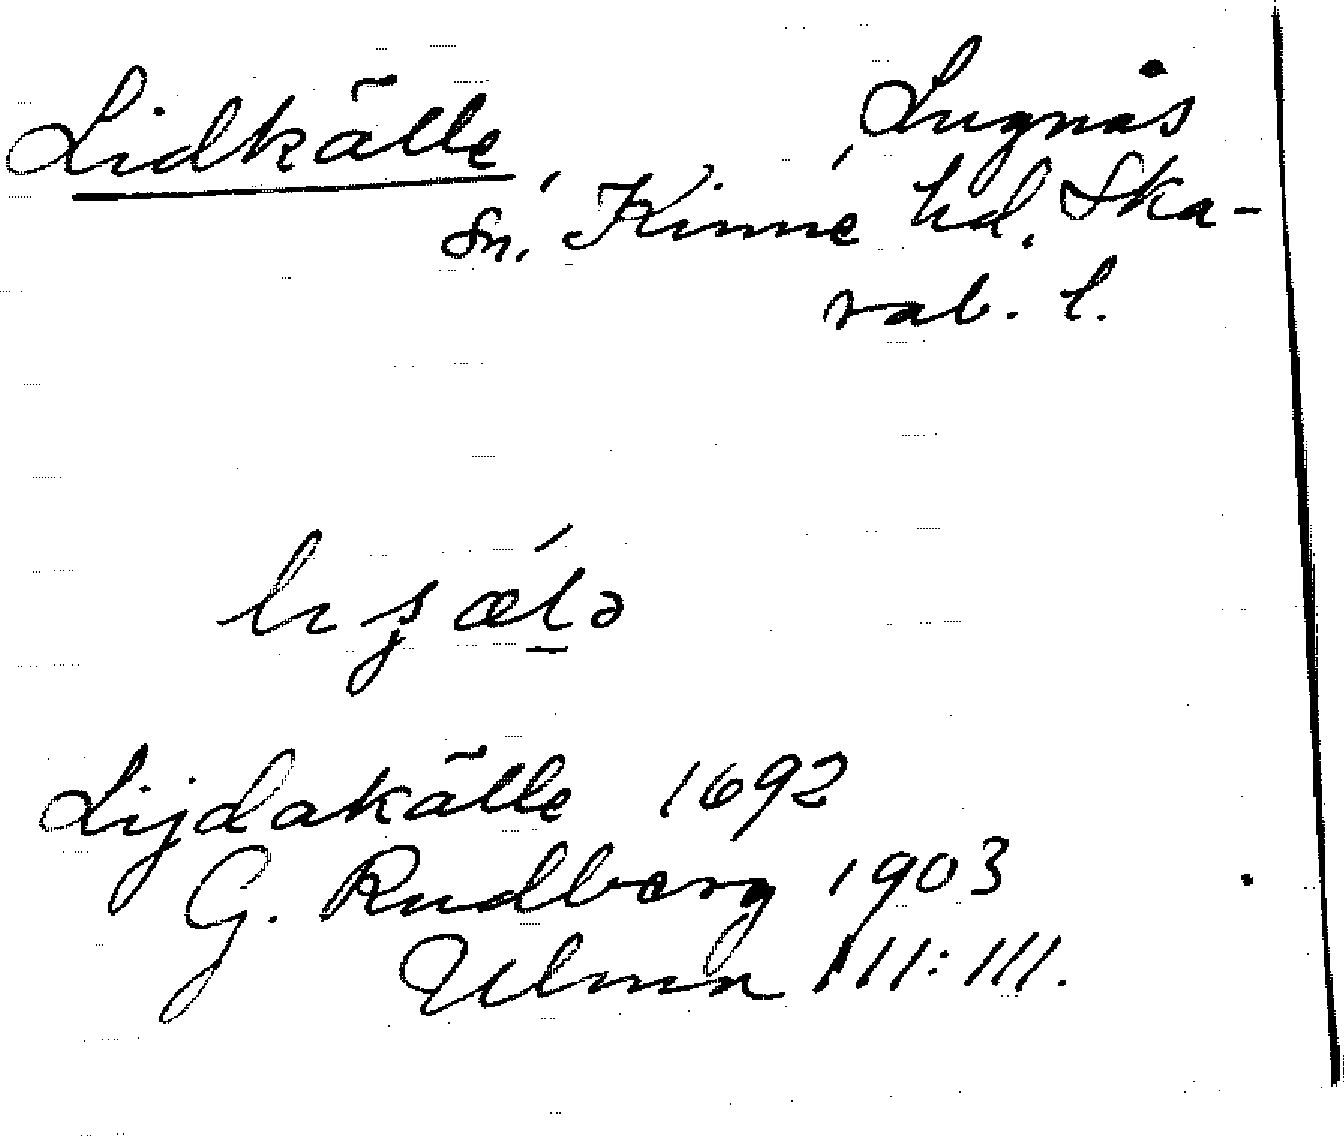 Lidkälle, Lugnås
sn, Kinne hd, Ska-
rab. l.
Lijdakälle 1692
G. Rudberg 1903
III:III.